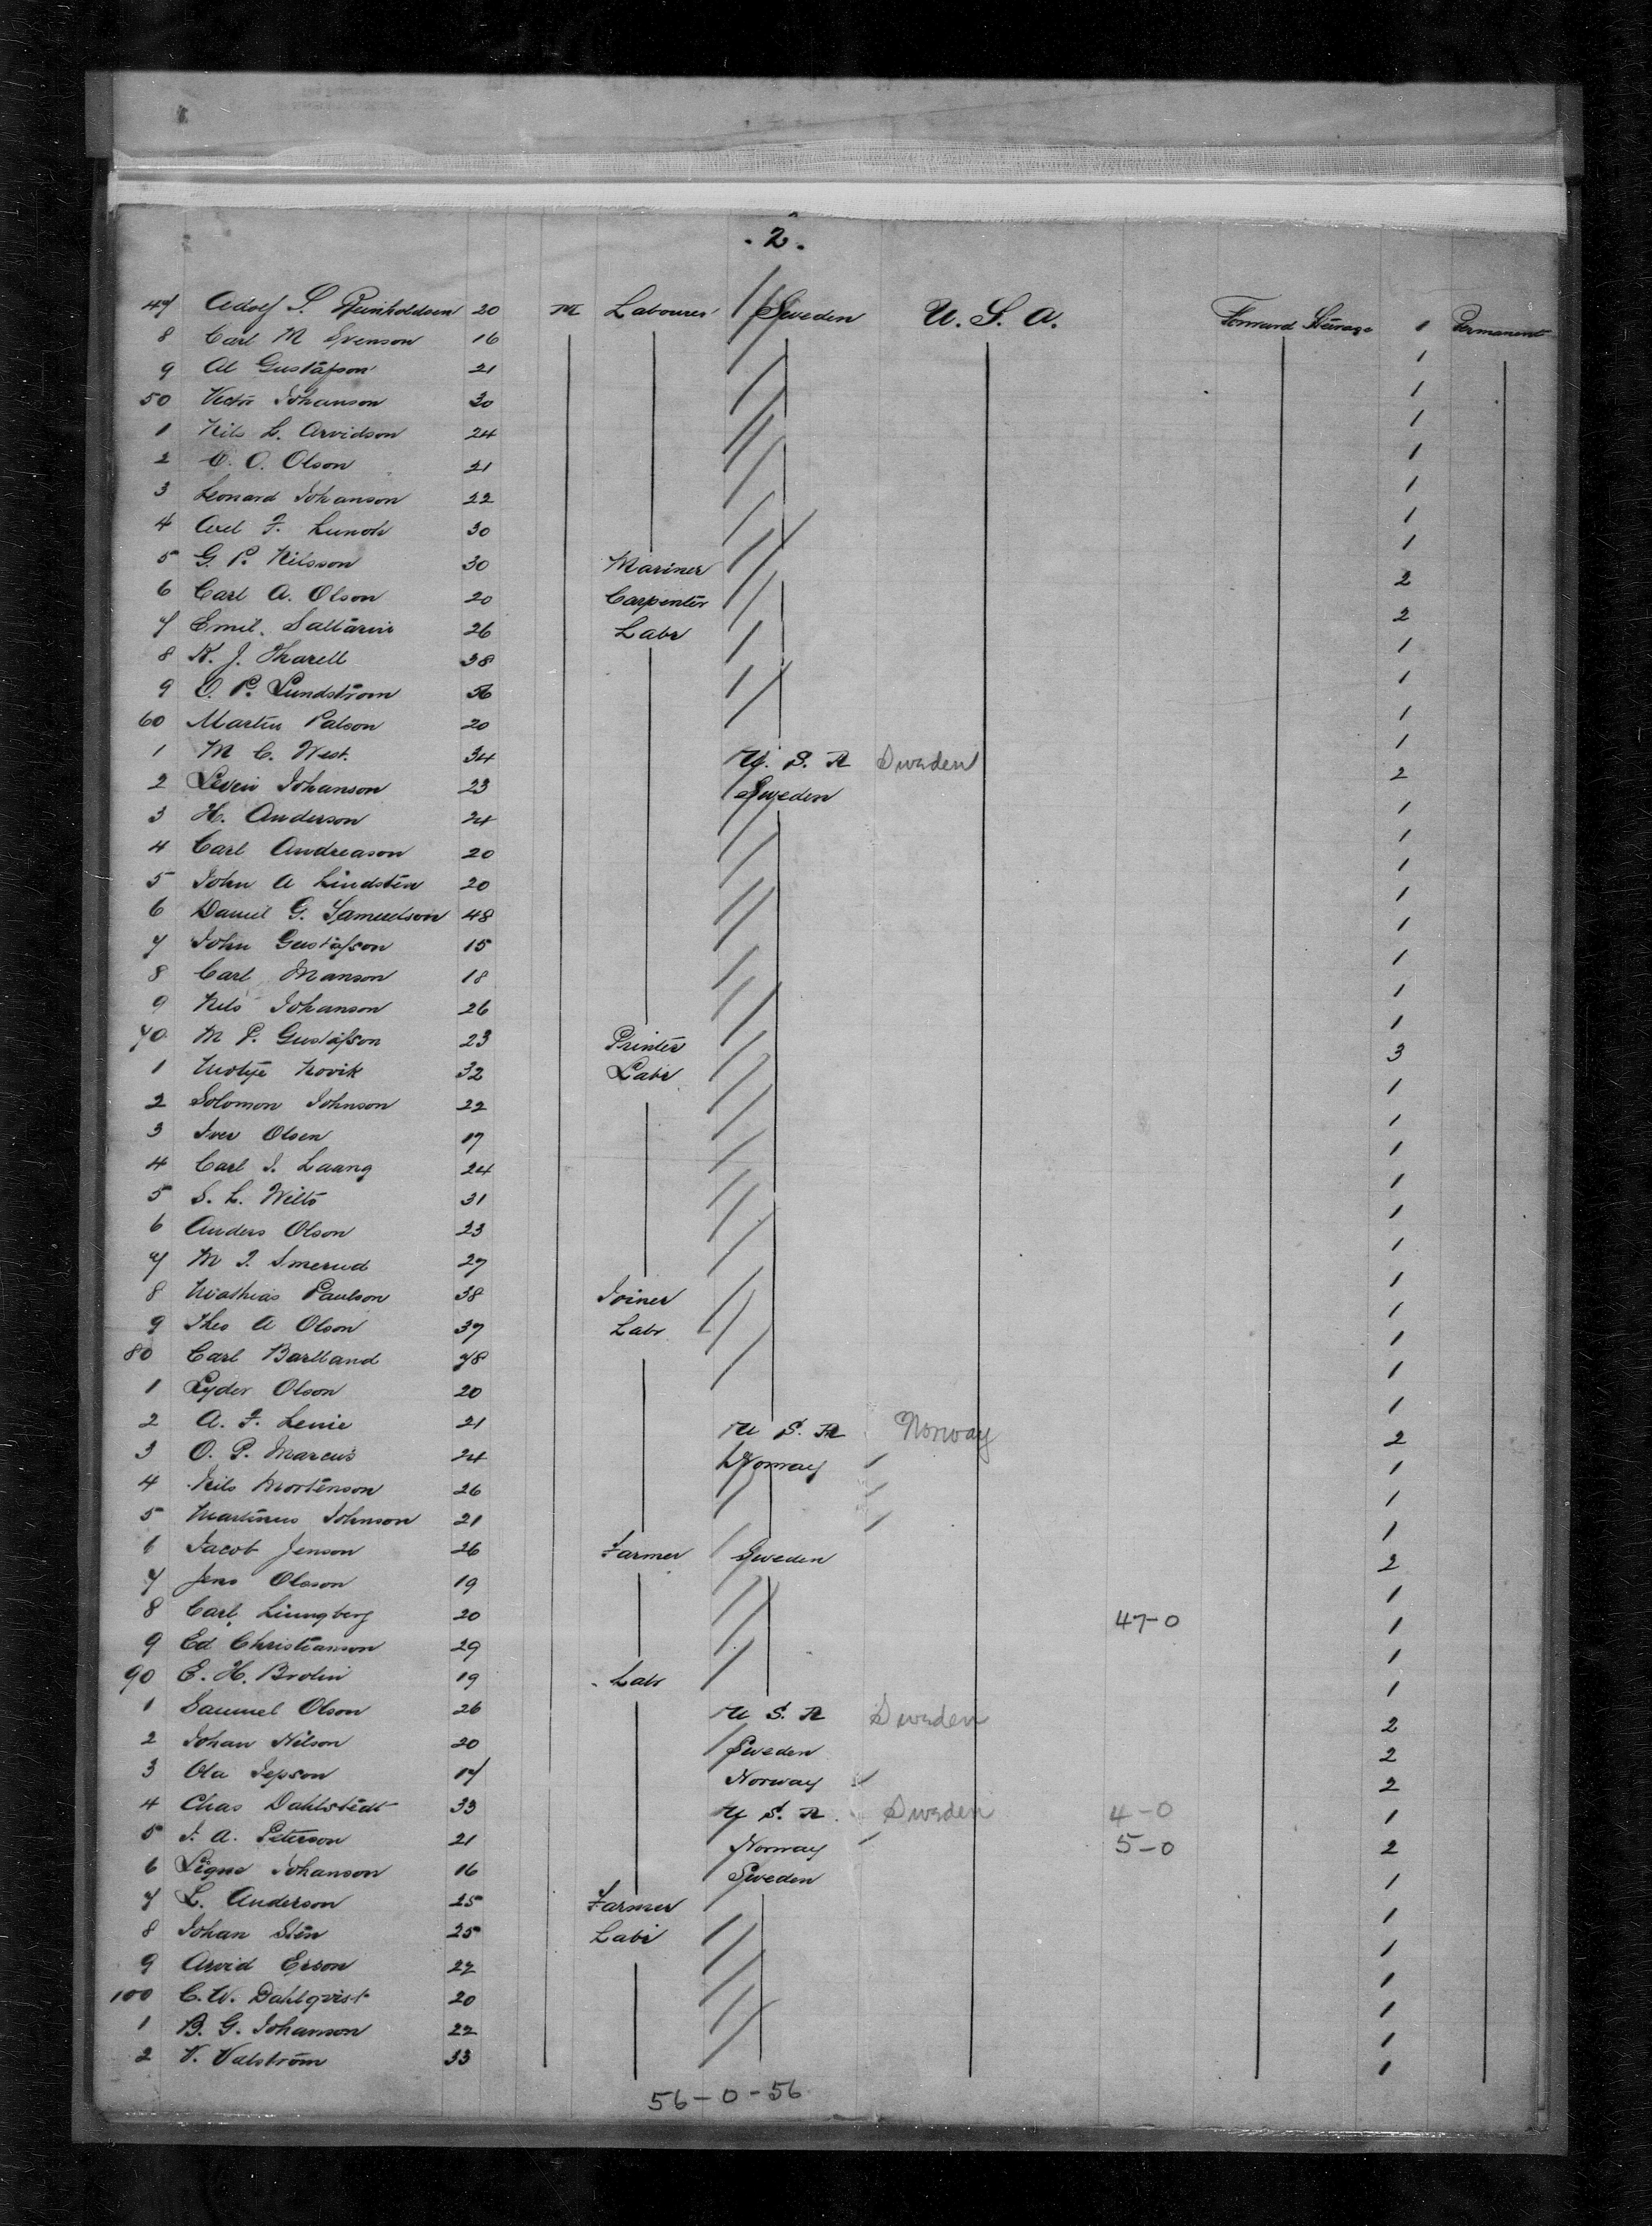 . 2 .
47 Adolf S. Reinholdsen 20 M Labourer Sweden U. S. A. Forward Steerage 1 Permanent
8 Carl M Svenson 16 1
9 Al Gustafson 21 1
50 Victor Johanson 30 1
1 Nils L. Arvidson 24 1
2 O. Olson 21 1
3 Leonard Johanson 22 1
4 Axel F. Lundh 30 1
5 G. P. Nilsson 30 Mariner 2
6 Carl A. Olson 20 Carpenter 2
7 Emil 26 Labr 1
8 K. J. Tharell 38 1
9 O. P. Lundstrom 56 1
60 Martin Palson 20 1
1 M C. West. 34 U. S. A Sweden 2
2 Johanson 23 Sweden 1
3 H. Anderson 24 1
4 Carl Andreason 20 1
5 John A Lindsten 20 1
6 Daniel G. Samuelson 48 1
7 John Gustafson 15 1
8 Carl Manson 18 1
9 Nels Johanson 26 1
70 M P. Gustafson 23 Printer 3
1 Novik 32 Labr 1
2 Solomon Johnson 22 1
3 Iver Olsen 17 1
4 Carl J. Laang 24 1
5 S. L. 31 1
6 Anders Olson 23 1
7 M J. Smerud 27 1
8 Mathias Paulson 38 Joiner 1
9 Theo A Olson 37 Labr 1
80 Carl Bartland 1
1 Lyder Olson 20 1
2 A. F. Lenie 21 U S. A Norway 2
3 O. P. Marcus 24 Norway 1
4 Nils Mortenson 26 1
5 Martinus Johnson 21 1
6 Jacob Jenson 26 Farmer Sweden 2
7 Jens Olsson 19 1
8 Carl Liungberg 20 47-0 1
9 Ed Christianson 29 1
90 E. H. Brolin 19 Labr 1
1 Samuel Olson 26 U S. A Sweden 2
2 Johan Nilson 20 Sweden 2
3 Ola Jepson 17 Norway 2
4 Chas Dahlstedt 33 U S. A. Sweden 4-0 1
5 J. A. Peterson 21 Norway 5-0 2
6 Signe Johanson 16 Sweden 1
7 L. Anderson 25 Farmer 1
8 Johan Sten 25 Labr 1
9 Arvid Erson 22 1
100 C. W. Dahlqvist 20 1
1 B. G. Johanson 22 1
2 V. Valstrom 33 1
56-0-56